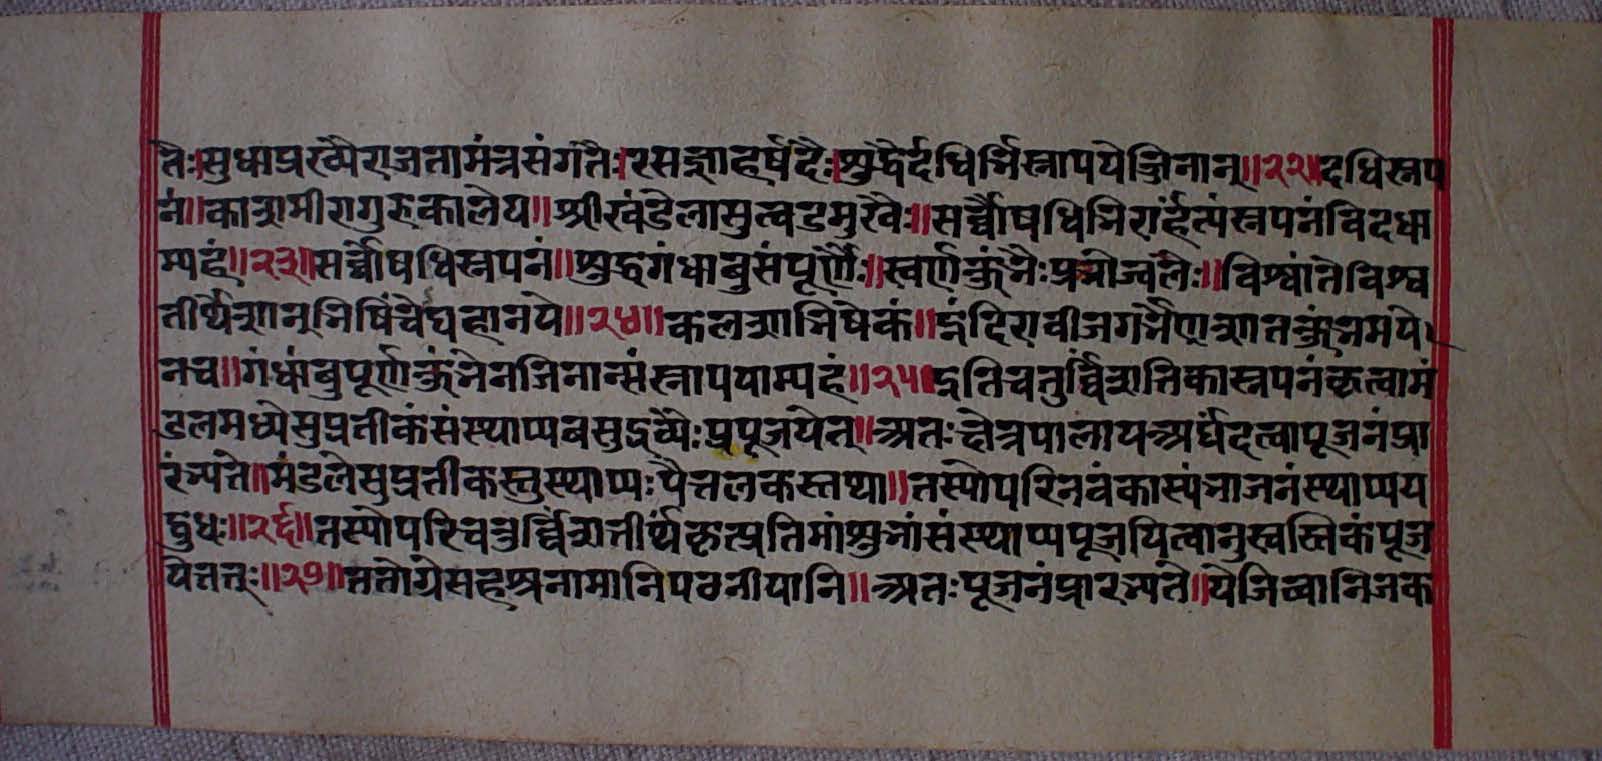 तैः।सुधाप्रख्यैराजतामंत्रसंगतैः।रसज्ञाहर्षदैः।शुद्धैर्दधिभिःस्नापयेज्जिनान्॥२२॥दधिस्नप
नं॥काश्मीरागुरुकालेय॥श्रीखंडैलासुत्वडमुखैः॥सर्व्वौषधिभिरांर्हत्यंस्नपनंविदधा
म्यहं॥२३॥सर्व्वौषधिस्नपनं॥शुद्धगंधाबुसंपूर्णैः॥स्वर्णकुंभैःप्रभोज्वलैः॥विश्वांतेविश्व
तीर्थेशान्भिषिंचेघहानये॥२४॥कलशाभिषेकं॥इंदिराबीजगर्भेणशातकुंभमये
नच॥गंधांबुपूर्णकुंभेनजिनान्संस्नापयाम्यहं॥२५॥इतिचतुर्विंशतिकास्नपनंकृत्वामं
डलमध्येसुप्रतीकंसंस्थाप्यबसुद्रव्यैःप्रपूजयेत्॥अतःक्षेत्रपालायअर्घंदत्वापूजनंप्रा
रंभ्यते॥मंडलेसुप्रतीकस्तुस्थाप्यःपैत्तलकस्तथा॥तस्योपरिनवंकास्यंभाजनंस्थाप्यय
द्बुधः॥२६॥तस्योपरिचतुर्व्विंशतीर्थकृत्प्रतिमांशुभांसंस्थाप्यपूजयित्वानुस्वस्तिकंपूज
येत्ततः॥२७॥ततोग्रेसहश्रनामानिपठनीयानि॥अतःपूजनंप्रारभ्यते॥येजित्वानिजक